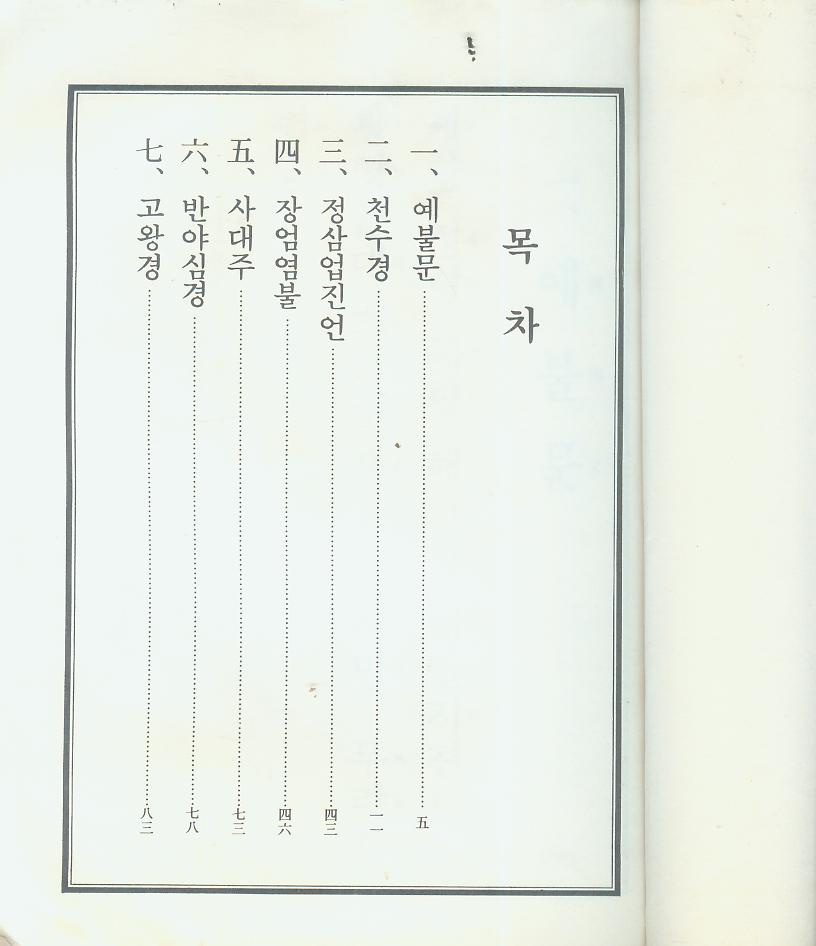 목차
一、예불문 五
二、천수경 一一
三、정삼업진언 四三
四、장엄염불 四六
五、사대주 七三
六、반야심경 七八
七、고왕경 八三